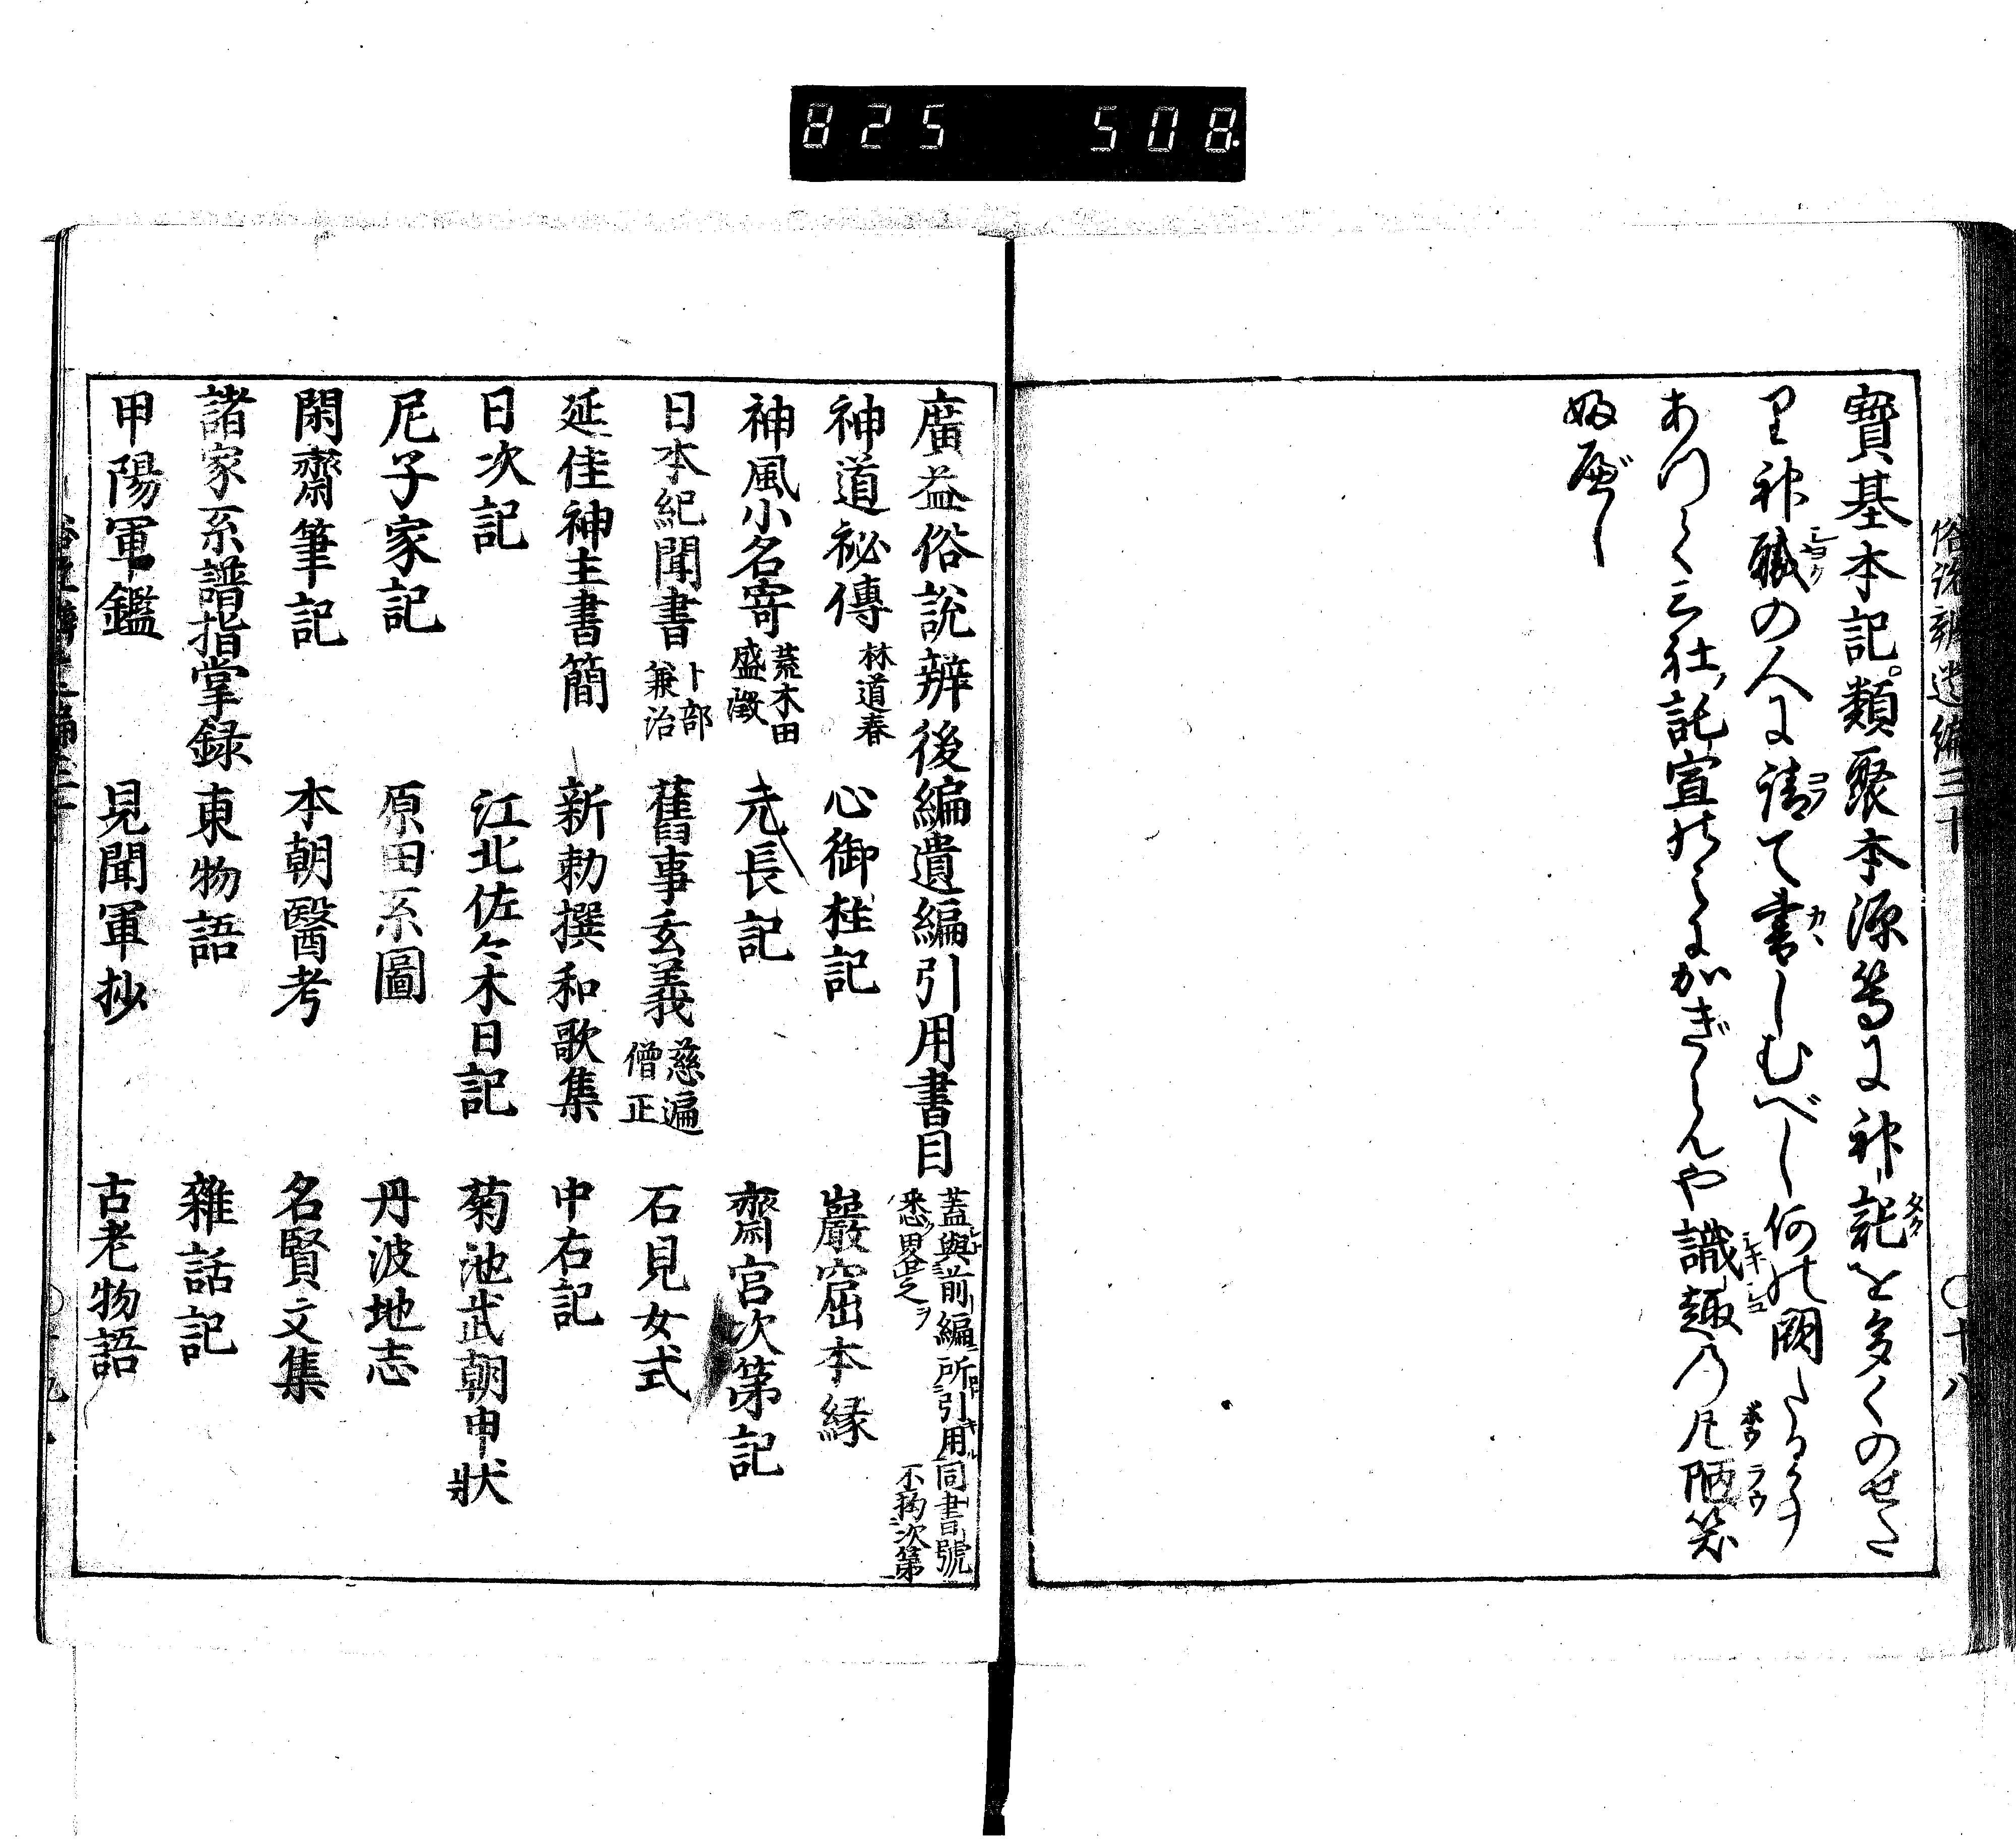 825 508
俗説辨遺編三十 〇十八
寳基本記。類聚本源等に神託を多くのせた
り神職の人に請て書しむべし何の闕たる
あつく三社託宣のミにかぎらんや識趣の凡陋笑
ぬべし
廣益俗説辨後編遺編引用書目 蓋與前編所引用同書號悉畧之不拘次第
神道祕傳 林道春 心御柱記 巖窟本縁
神風小名寄 荒木田盛澂 元長記 齋宮次第記
日本紀聞書 卜部兼治 舊事玄義 慈遍僧正 石見女式
延佳神主書簡 新勅撰和歌集 中右記
日次記 江北佐々木日記 菊池武朝申狀
尼子家記 原田系圖 丹波地志
閑齋筆記 本朝醫考 名賢文集
諸家系譜指掌録 東物語 雜話記
甲陽軍鑑 見聞軍抄 古老物語